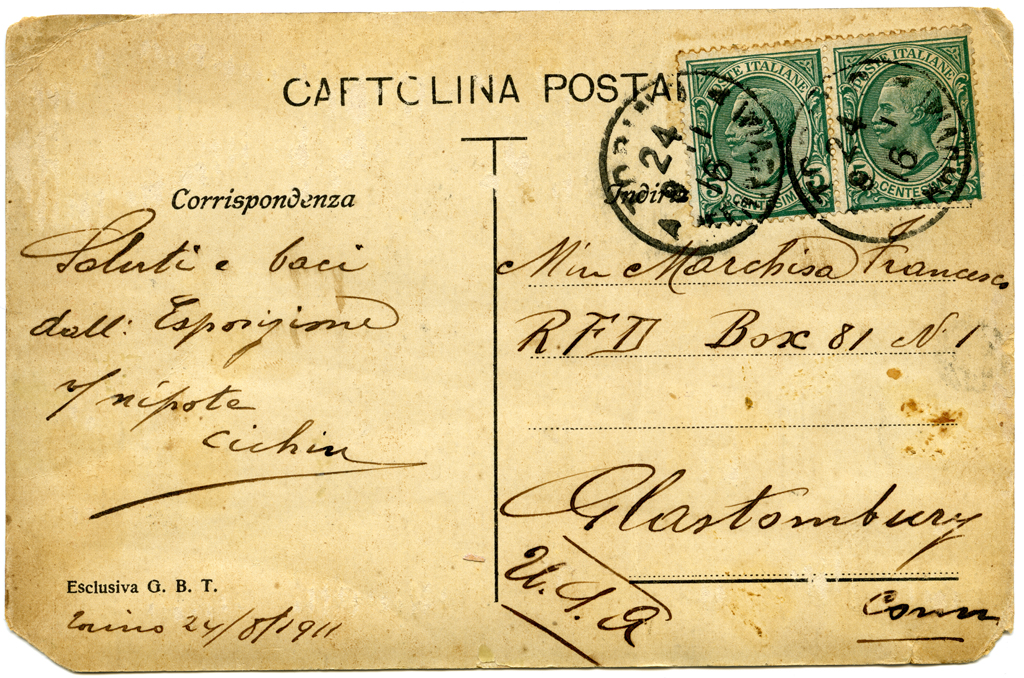 CARTOLINA POSTA
Corrispondenza
Saluti e baci
dall' Esposizione
v/ nipote
Cichin
Esclusiva G. B. T.
Torino 24/8/1911
POSTE ITALIANE
5 CENTESIMI
POSTE ITALIANE
5 CENTESIMI
TORINO
24
11
16
24
16
Indiriz
Marchisa Francesco
R.F.D Box 81 N. 1
Glastombury
U.S.A
Conn